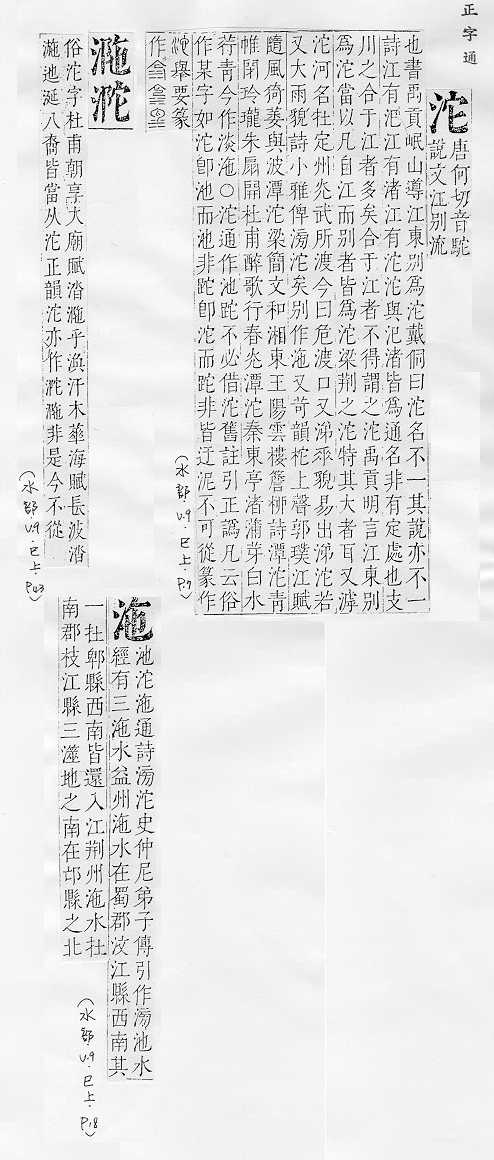 正字通
沱
唐何切音駝
說文江別流
也書禹貢岷山導江東別爲沱戴侗曰沱名不一其說亦不一
詩江有汜江有渚江有沱沱與汜渚皆爲通名非有定處也支
川之合于江者多矣合于江者不得謂之沱禹貢明言江東別
爲沱當以凡自江而別者皆爲沱梁荆之沱特其大者耳又滹
沱河名在定州光武所渡今曰危渡口又涕垂貌易出涕沱若
又大雨貌詩小雅俾滂沱矣別作沲又苛韻柁上聲郭璞江賦
隨風猗萎與波潭沱梁簡文和湘東王陽雲樓簷柳詩潭沱青
帷閉玲瓏朱扇開杜甫醉歌行春光潭沱秦東亭渚蒲芽白水
荇青今作淡沲○沱通作池跎不必借沱舊註引正譌凡云俗
作某字如沱卽池而池非跎卽沱而跎非皆迂泥不可從篆作
舉要篆
作
俗沱字杜甫朝享大廟賦㳫乎渙汗木華海賦長波㳫
沲迆涎八裔皆當从沱正韻沱亦作非是今不從
(水部.V.9.巳上.P.43)
(水部.V.9.巳上.P.9)
沲
池沱沲通詩滂沱史仲尼弟子傳引作滂池水
經有三沲水益州沲水在蜀郡汶江縣西南其
一在郫縣西南皆還入江荆州沲水在
南郡枝江縣三澨地之南在邔縣之北
(水部.V.9.巳上.P.18)